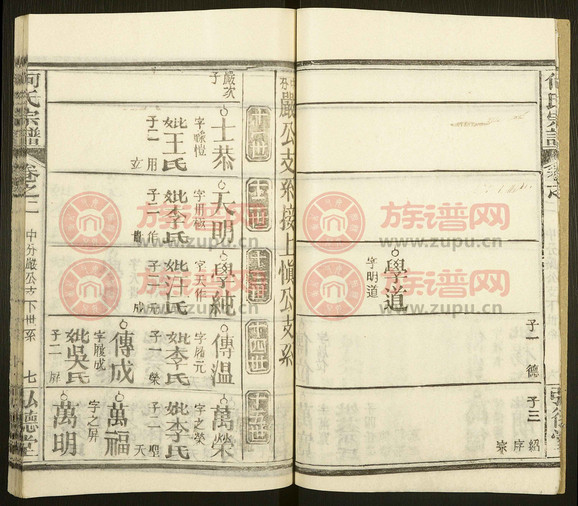 何氏宗譜
學道
字明道
子一 德
子三 紹 序 宗
中分嚴公支系接上愼公支系
十一世
十二世
十三世
十四世
十五世
嚴次子
士恭
妣王氏
子二 用
大明
妣李氏
子一
學純
字天作
妣汪氏
子二 元 成
傳溫
字履元
妣李氏
子一 榮
傳成
字履成
妣吳氏
子二 屏
萬榮
字之榮
妣李氏
子一 聖
萬福
字之屏
萬明
何氏宗譜
卷之二
中分嚴公支下世系
七
弘德堂
族谱网
www.zupu.cn
族谱网
www.zupu.cn
族谱网
www.zupu.cn
族谱网
www.zupu.cn